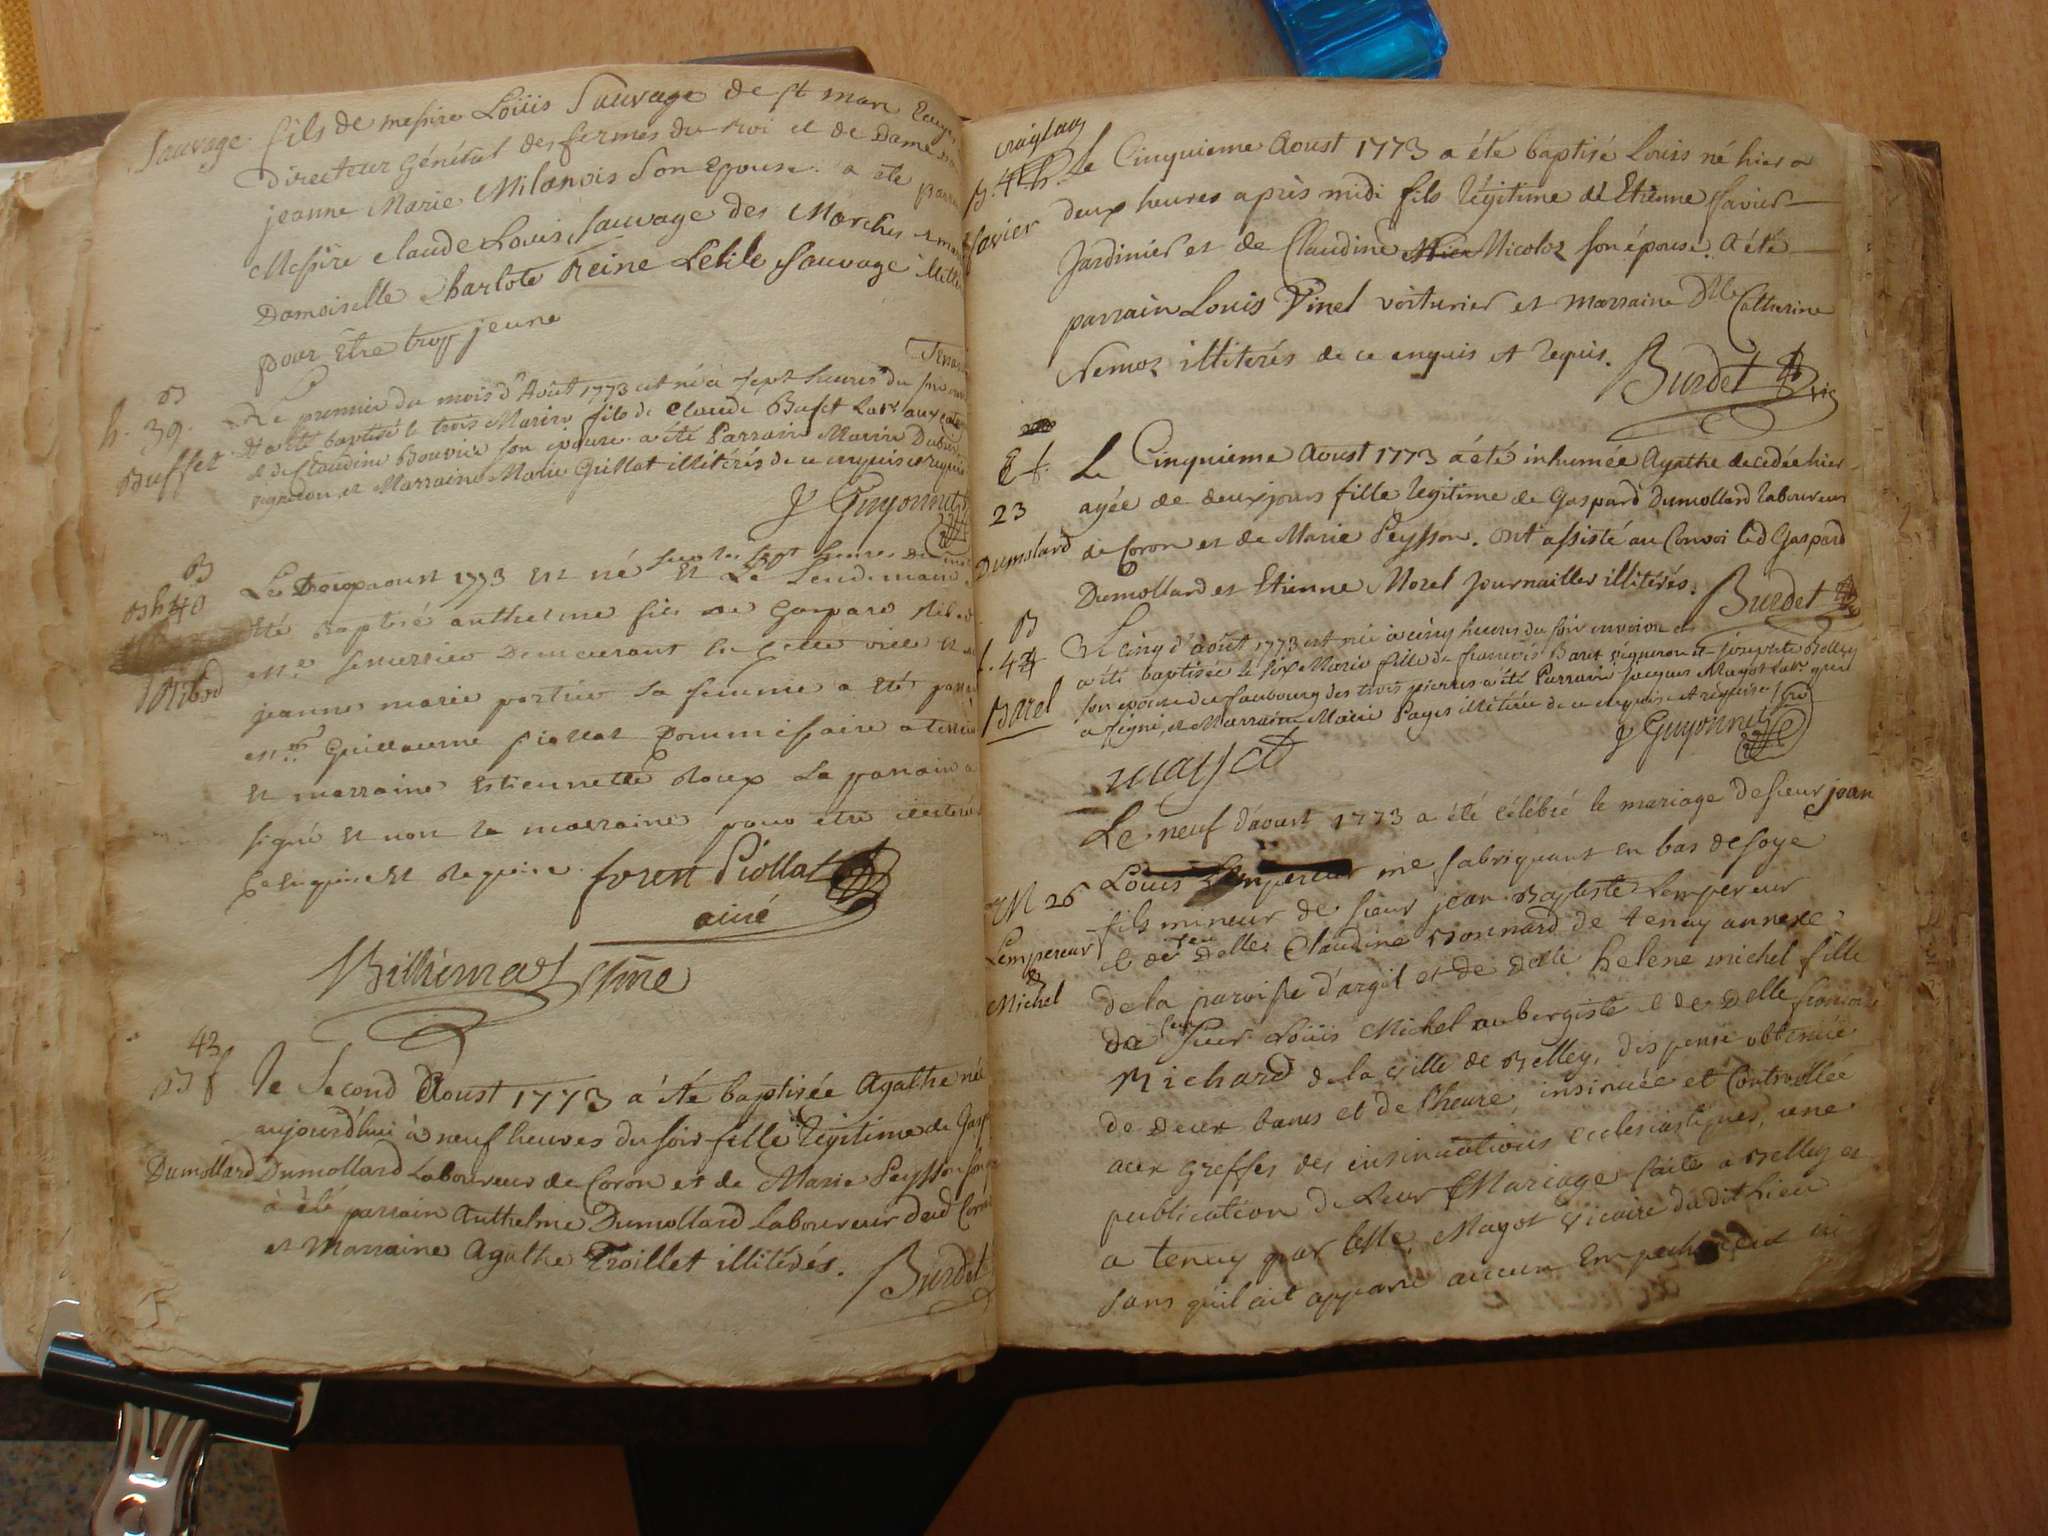 Sauvage fils de messire Loüis Sauvage de st marc
Directeur Général des fermes du roi et de Dame
jeanne Marie Milanois Son Epouse. a eté
Messire claude Louis Sauvage des Marches
Damoiselle charlote Reine Sauvage
pour Etre trop jeune
B
h. 39.
Buffet
Le premier du mois d'Août 1773 est né à sept heures du
Ha été baptisé le trois Marin fils de Claude Bufet
et de Claudine Bouvier son epouse a été Parrain Marin
vigneron et Marraine Marie Guillot illitérés de ce enquis et requis
J Guyonnet
B
h 40
Ribod
aoust 1773 Est né Sur les Sept heures
Et Le Lendemain
Eté Baptisé anthelme fils de Gaspard Ribod
demeurant
jeanne marie portier sa femme a Eté
Guillaume piollat Commissaire
Et marraine Estiennette Roux Le parrain a
signé Et non la marraine pour etre
Enquise Et Requise. Piollat
ainé
43
B f
Dumollard
le Second Aoust 1773 à été baptisée Agathe née
aujourd'hui à neuf heures du soir fille légitime de
Dumollard Laboureur de Coron et de Marie Peysson
à été parrain Anthelme Dumollard laboureur
et Marraine Agathe Troillet illitérés.
Burdet
B. 41 h.
Savier
Le Cinquieme Aoust 1773 a été baptisé Louis né hier a
deux heures après midi fils légitime de Etienne Savier
Jardinier et de Claudine Nicoloz son épouse. A été
parrain Louis Pinel voiturier et marraine Dlle Catherine
Nemoz illiterés de ce enquis et requis.
Burdet
f.
23
Dumolard
Le Cinquieme Aoust 1773 a été inhumée Agathe decedée hier
agée de deux jours fille legitime de Gaspard Dumollard laboureur
de Coron et de Marie Peysson. ont assisté au Convoi led Gaspard
Dumollard et Etienne Morel Journallier illitérés.
Burdet
B
f. 42
Barel
Le cinq d'août 1773 est née à cinq heures du soir environ et
a été baptisée le six Marie fille de francois Baret vigneron et
son epouse du faubourg des trois pierres a été Parrain Jacques Mayot
a signé, et Marraine Marie Pages illitérée de ce enquise et requise
J Guyonnet
mayot
M 26
Lempereur
&
Michel
Le neuf d'aoust 1773 a été célébré le mariage de sieur jean
Louis Lempereur me fabriquant en bas de soye
fils mineur de sieur jean Baptiste Lempereur
et de feu Delle Claudine Bonnard de tenay annexe
de la paroisse d'argil et de delle helene michel fille
de feu sieur Loüis Michel aubergiste et de Delle
Michard de la ville de Belley, dispense obtenüe
de deux bans et de l'heure, insinuée et Controllée
aux Greffes des insinuations ecclesiastiques, une
publication de Leur Mariage faite a Belley et
a tenay par Mayot vicaire dudit Lieu
sans qu'il ait apparu aucun Empechement